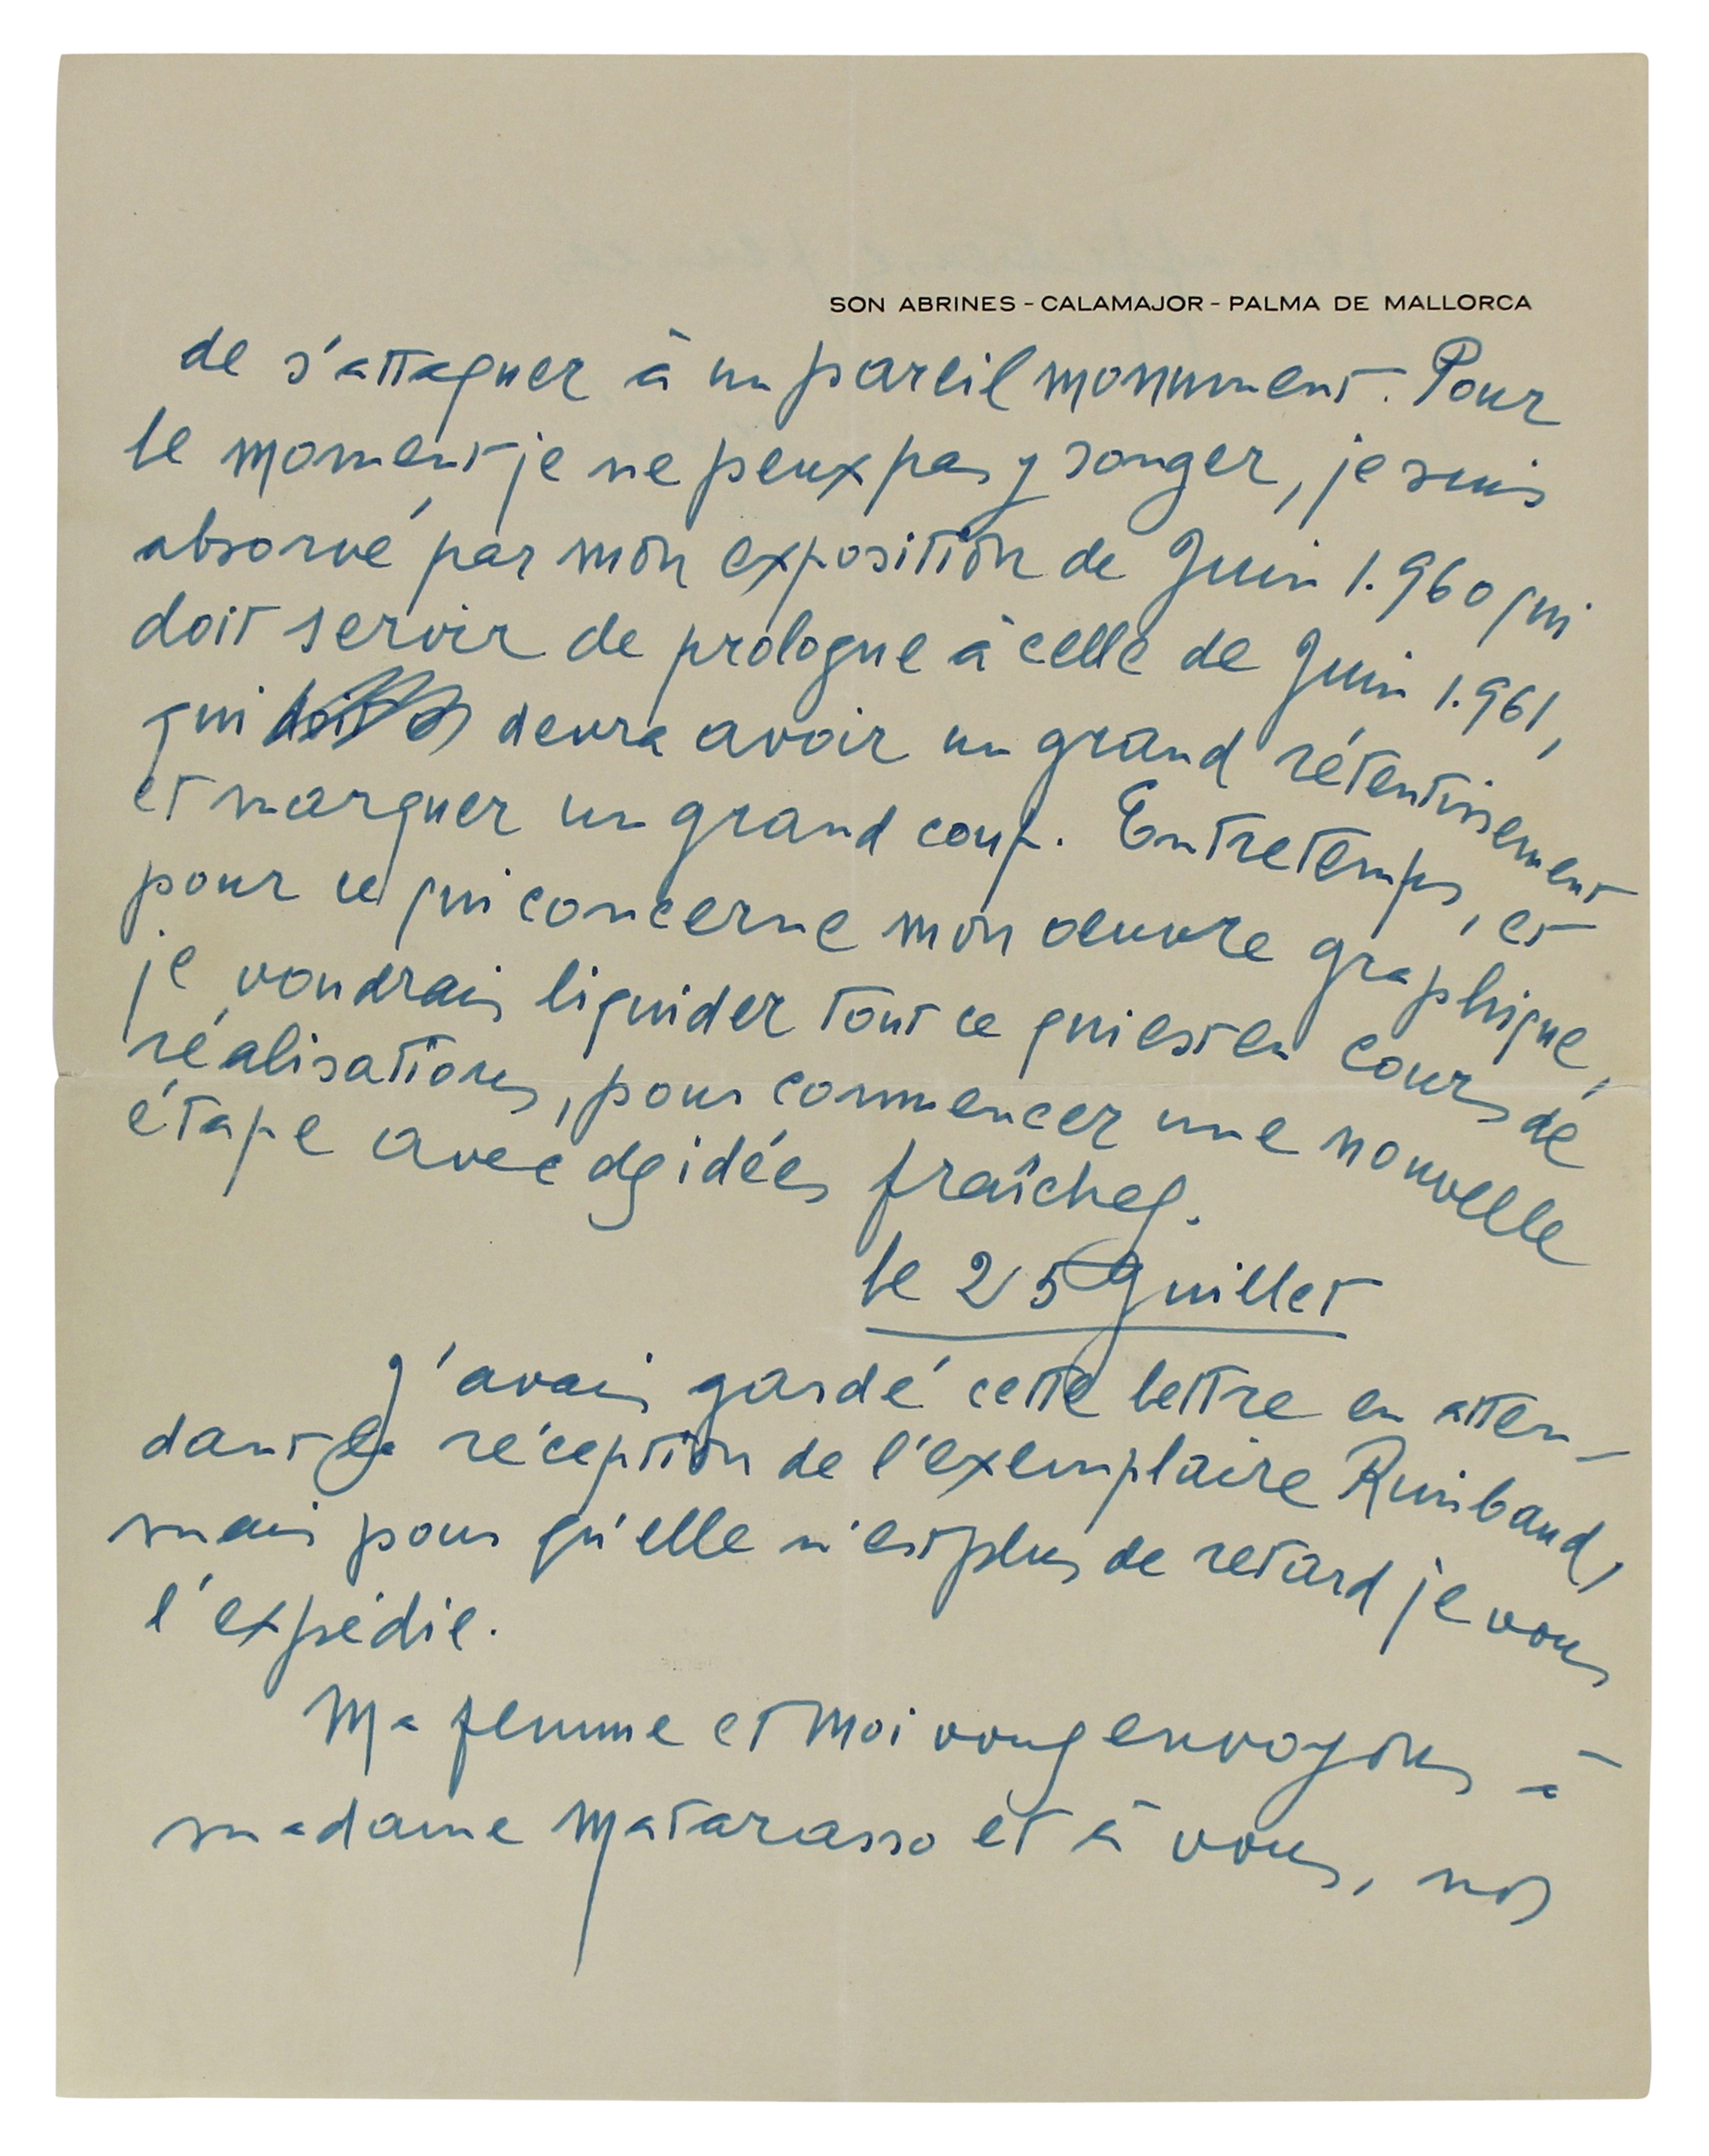 SON ABRINES - CALAMAJOR - PALMA DE MALLORCA
de s'attaquer à un pareil monument. Pour
le moment je ne peux pas y songer, je suis
absorvé par mon exposition de Juin 1.960 qui
doit servir de prologue à celle de Juin 1.961,
qui devra avoir un grand rétentissement
et marquer un grand coup. Entretemps, et
pour ce qui concerne mon oeuvre graphique,
je voudrais liquider tout ce qui est en cours de
réalisations, pour commencer une nouvelle
étape avec des idées fraîches.
le 25 Juillet
J'avais gardé cette lettre en atten-
dant la réception de l'exemplaire Rimbaud,
mais pour qu'elle n'est plus de retard je vous
l'expédie.
Ma femme et moi vous envoyons à
madame Matarasso et à vous, nos